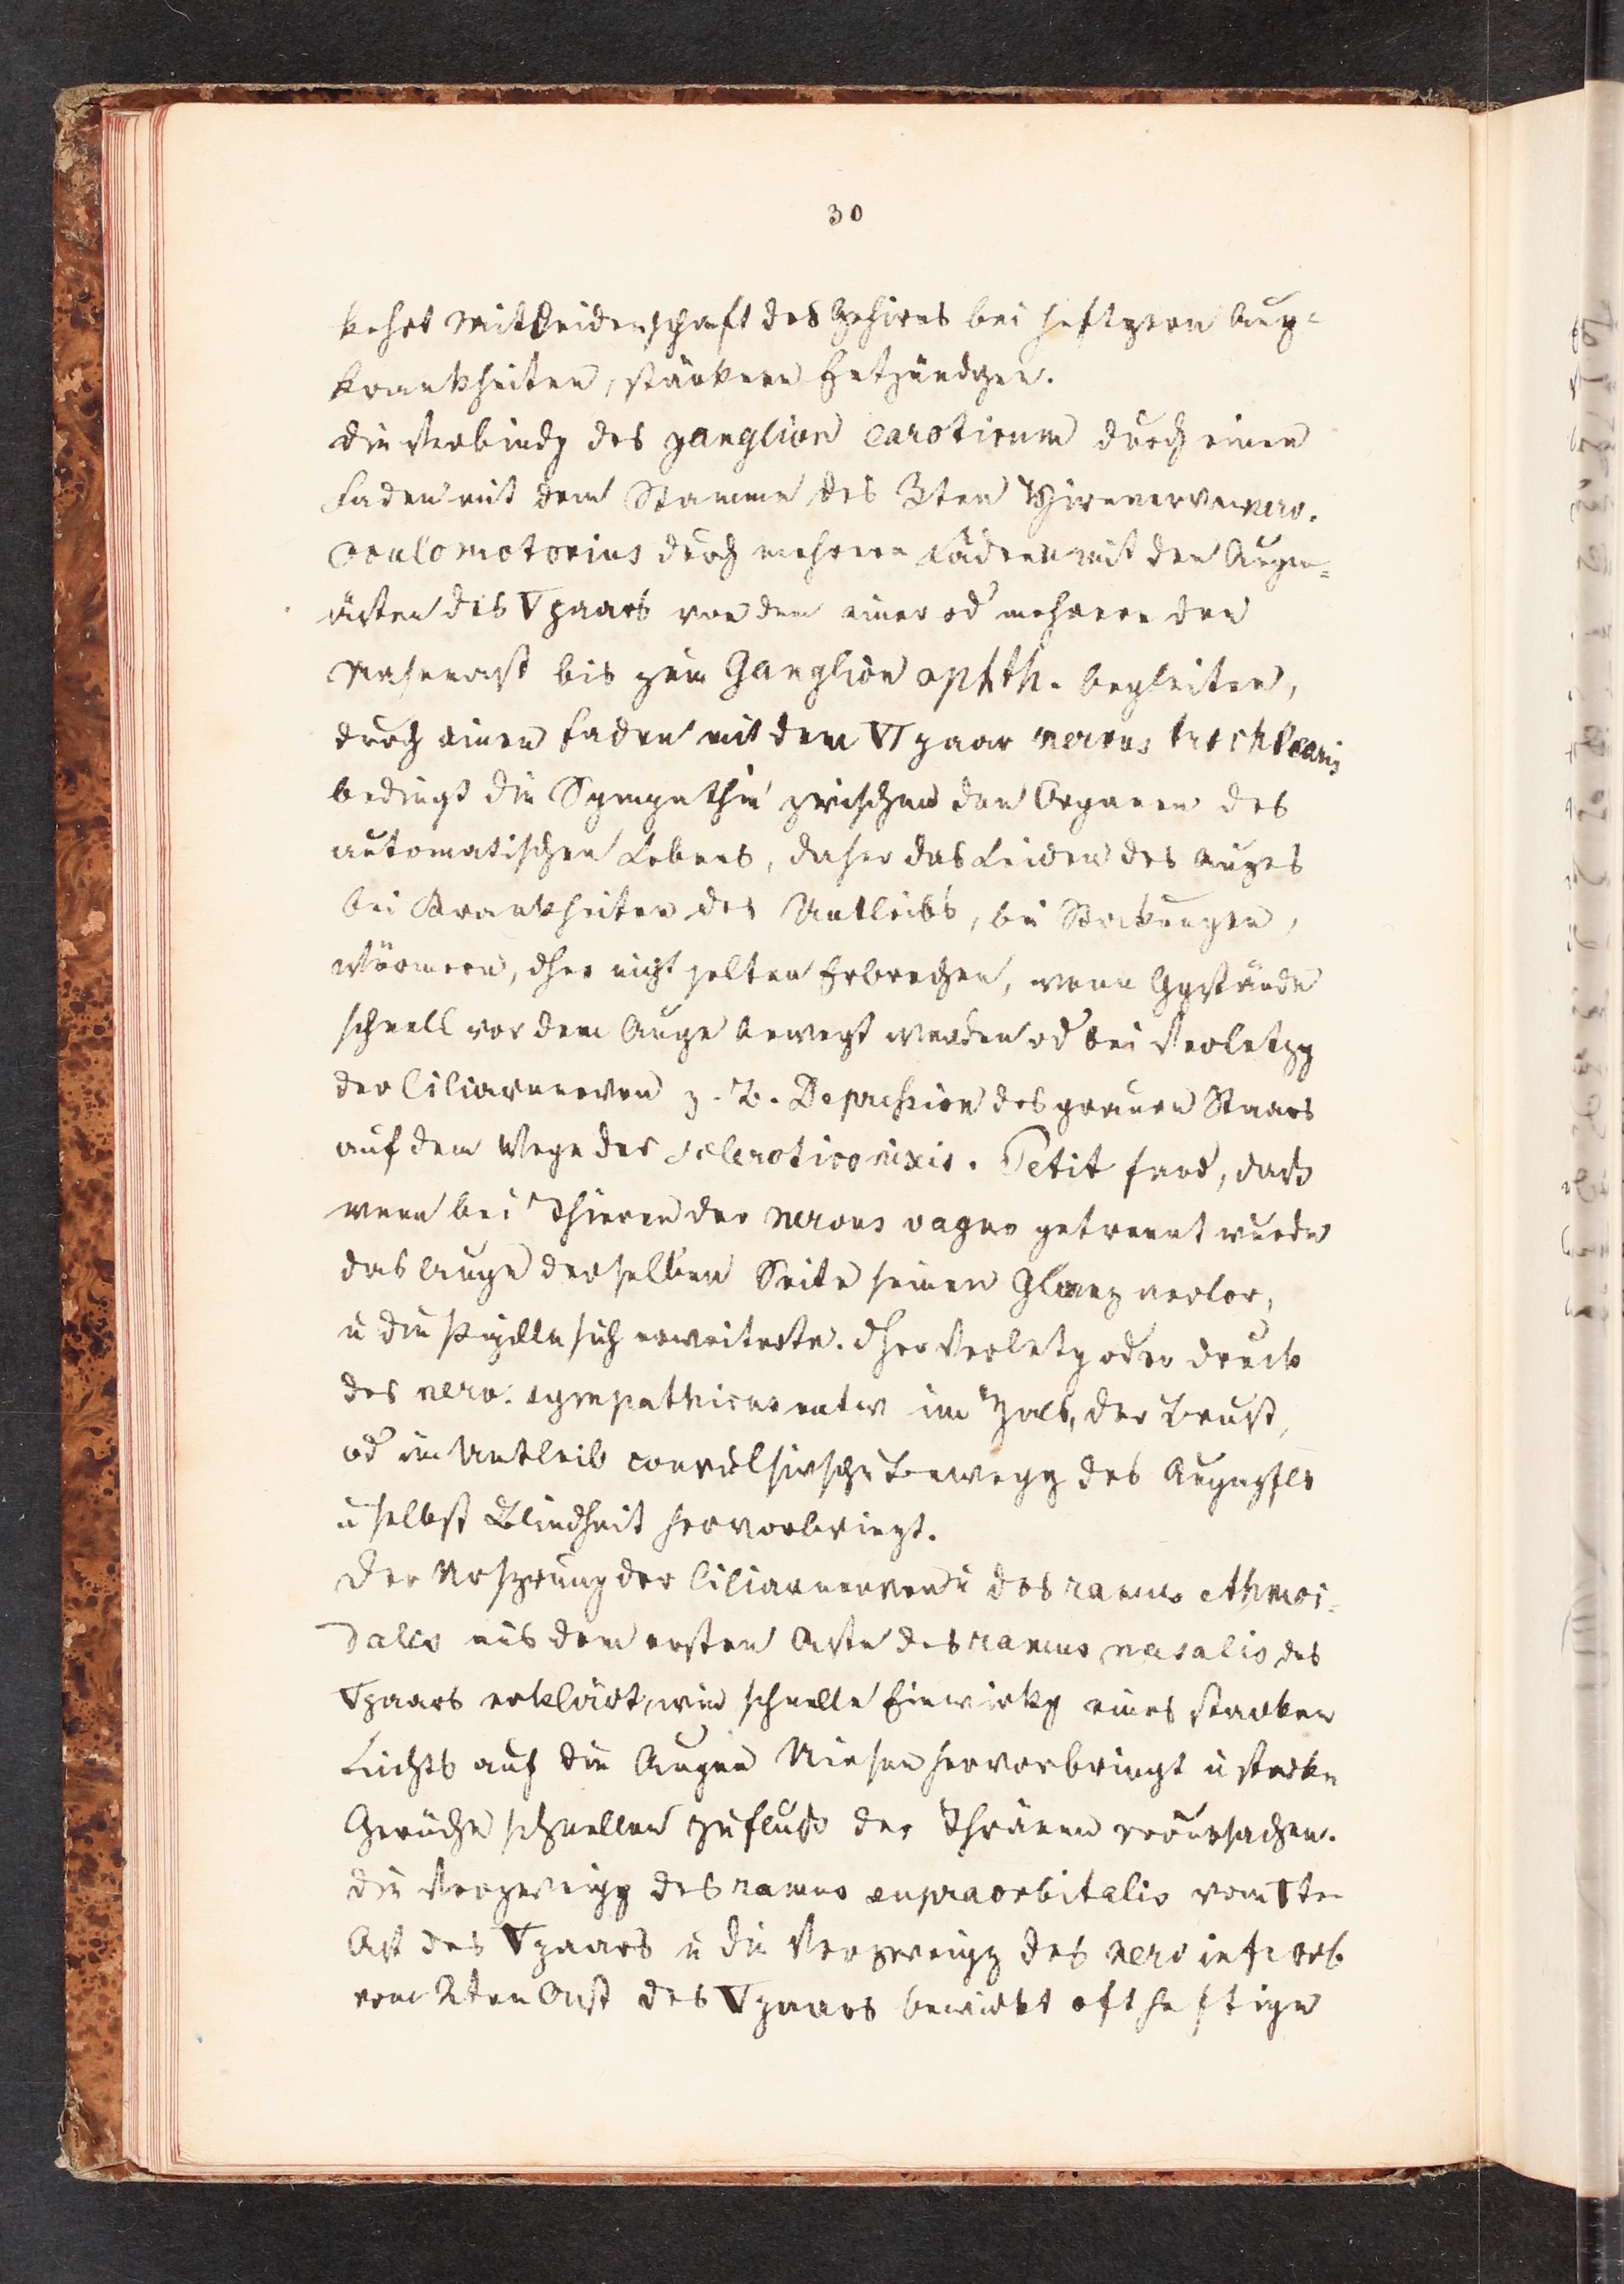 30
kehrt Mitleidenschaft des Gehirns bei heftgern Aug-
krankheiten, stärkern Entzündgen.
die Verbindg des ganglion caroticum durch einen
Faden mit dem Stamme des 3ten Hirnnerven nerv.
oculomotorius durch mehrere Fäden mit den Augen-
ästen des V paars von den einer od mehrere den
Nasenast bis zum Ganglion ophth. begleiten,
durch einen Faden mit dem VI paar nervus trochlearis
bedingt die Sympathie zwischen den Organen des
automatischen Lebens, daher das Leiden des Auges
bei Krankheiten des Untleibs, bei Stockungen,
Würmern, dher nicht selten Erbrechen, wenn Ggstände
schnell vor dem Auge bewegt werden od bei Verletzg
der Ciliarnerven z. B. Depression des grauen Staars
auf dem Wege der scleroticonixis. Petit fand, daß
wenn bei Thieren der nervus vagus getrennt wurde
das Auge derselben Seite seinen Glanz verlor,
u die Pupille sich erweiterte. dher Verletzg oder Druck
des nerv. sympathicus entw im Hals, der Brust,
od im Untleib convulsivische Bewegg des Augapfls
u selbst Blindheit hervorbringt.
Der Ursprung der Ciliarnerven u des ramus ethmoi-
dalis aus dem ersten Aste des ramus nasalis des
V paars erklärt, wie schnelle Einwirkg eines starken
Lichts auf die Augen Niesen hervorbringt u starke
Gerüche schnellen Zufluß der Thränen verursachen.
die Verzweigg des ramus supraorbitalis vom 1ten
Ast des V paars u die Verzweigg des nerv infraorb
vom 2ten Ast des V paars bewirkt oft heftige